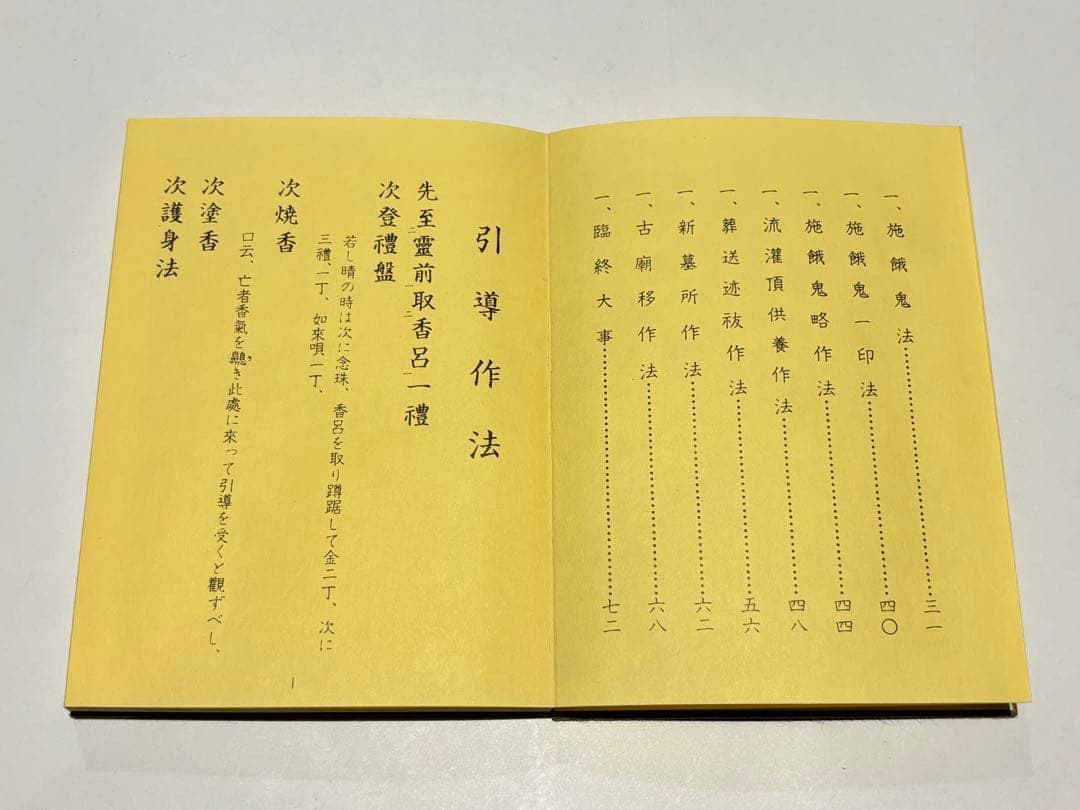 一、施餓鬼法……………………三一
一、施餓鬼一印法……………………四〇
一、施餓鬼略作法……………………四四
一、流灌頂供養作法……………………四八
一、葬送迹祓作法……………………五六
一、新墓所作法……………………六二
一、古廟移作法……………………六八
一、臨終大事……………………七二
引導作法
先至二靈前一取二香呂一一禮
次登禮盤
若し晴の時は次に念珠、香呂を取り蹲踞して金二丁、次に
三禮、一丁、如來唄一丁、
次焼香
次塗香
口云、亡者香氣を齅き此處に來って引導を受くと觀ずべし、
次護身法
1